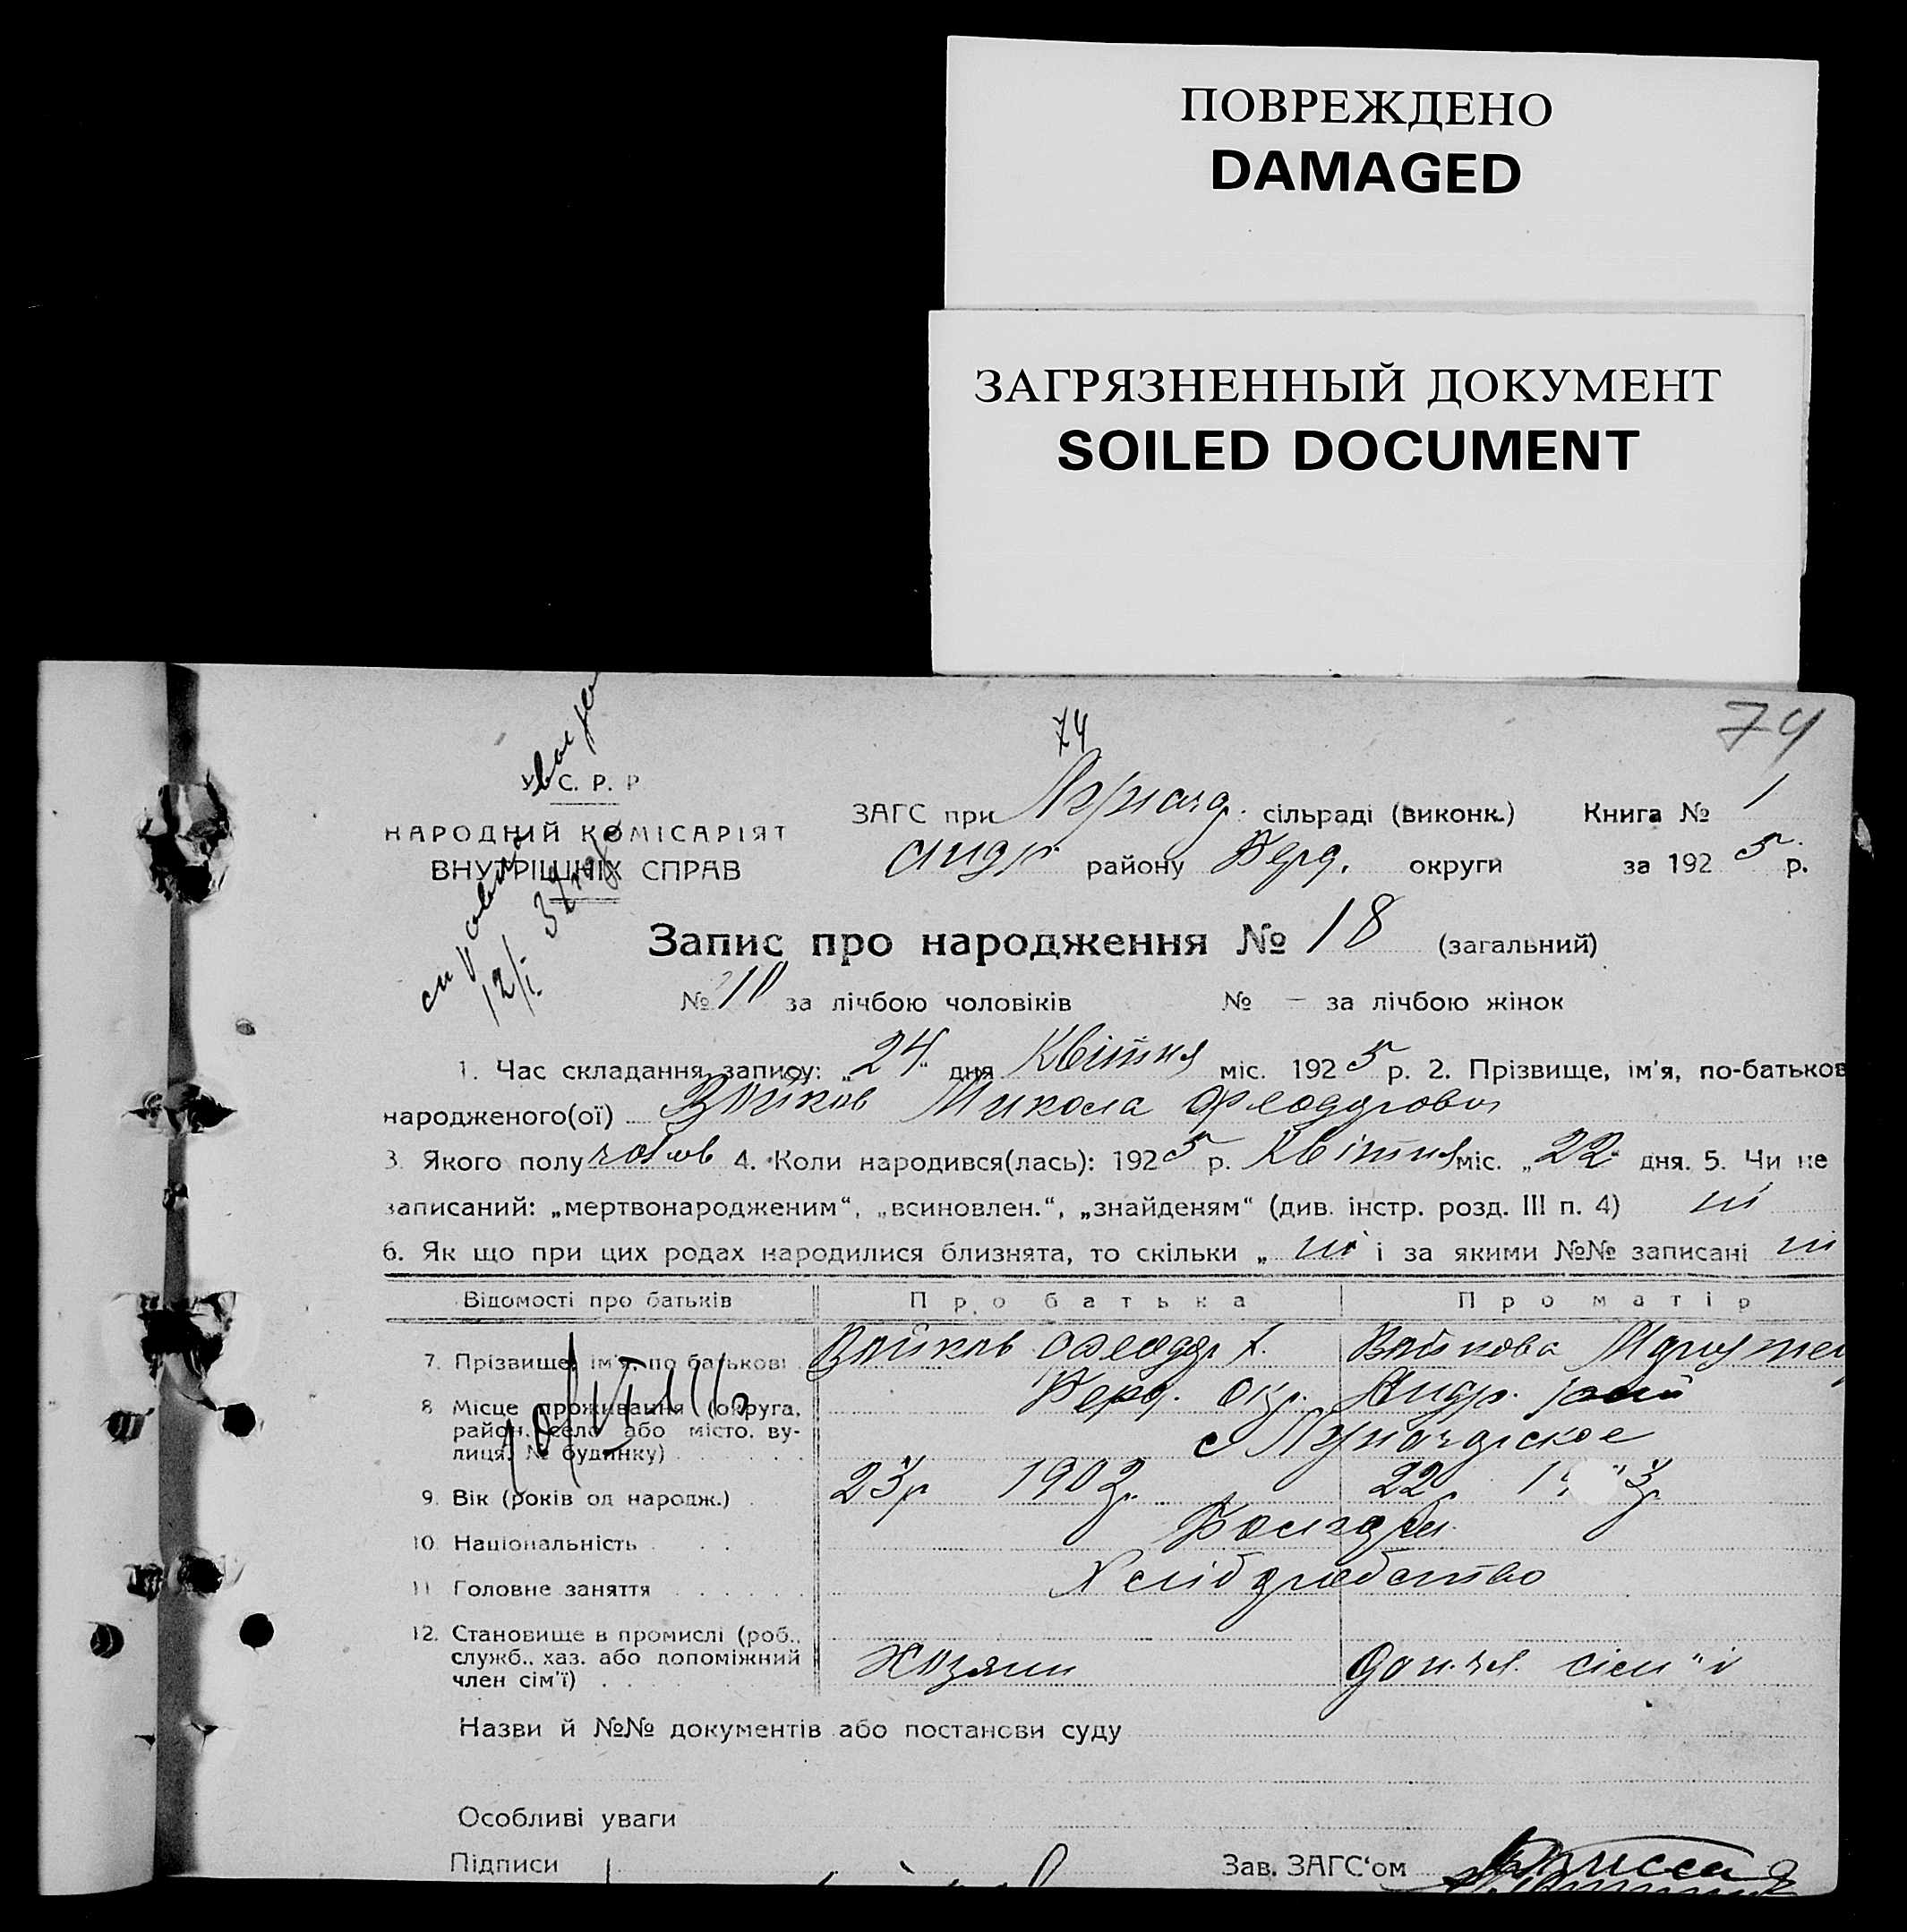 ПОВРЕЖДЕНО
DAMAGED
ЗАГРЯЗНЕННЫЙ ДОКУМЕНТ
SOILED DOCUMENT
74
74
У. С. Р. Р
НАРОДНІЙ КОМІСАРІЯТ
ВНУТРІШНІХ СПРАВ
12/I 39
ЗАГС при сільраді (виконк.) Книга № 1
Андр. району Берд. округи за 1925 р.
Запис про народження № 18 (загальний)
№ 10 за лічбою чоловіків № – за лічбою жінок
1. Час складання запису: „24“ дня Квітня міс. 1925 р. 2. Прізвище, ім'я, по-батьков
народженого(ої) Войков Микола
3. Якого полу чолов 4. Коли народився(лась): 1925 р. Квітня міс. „22“ дня. 5. Чи не
записаний: „мертвонародженим“, „всиновлен.“, „знайденям“ (див. інстр. розд. III п. 4) ні
6. Як що при цих родах народилися близнята, то скільки „ ні і за якими №№ записані ні
Відомості про батьків Про батька Про матір
7. Прізвище, ім'я, по батькові Войков Войкова
8 Місце проживання (округа, Берд. окр. Андр. район
район, село або місто, ву-
лиця, № будинку)
9. Вік (років од народж.) 23р 1902р. 22р
10. Національність Болгари
11. Головне заняття Хліборобство
12. Становище в промислі (роб.,
служб., хаз. або допоміжний Хозяин Доп. чл. сім"ї
член сім'ї)
Назви й №№ документів або постанови суду
Особливі уваги
Підписи Зав. ЗАГС‘ом